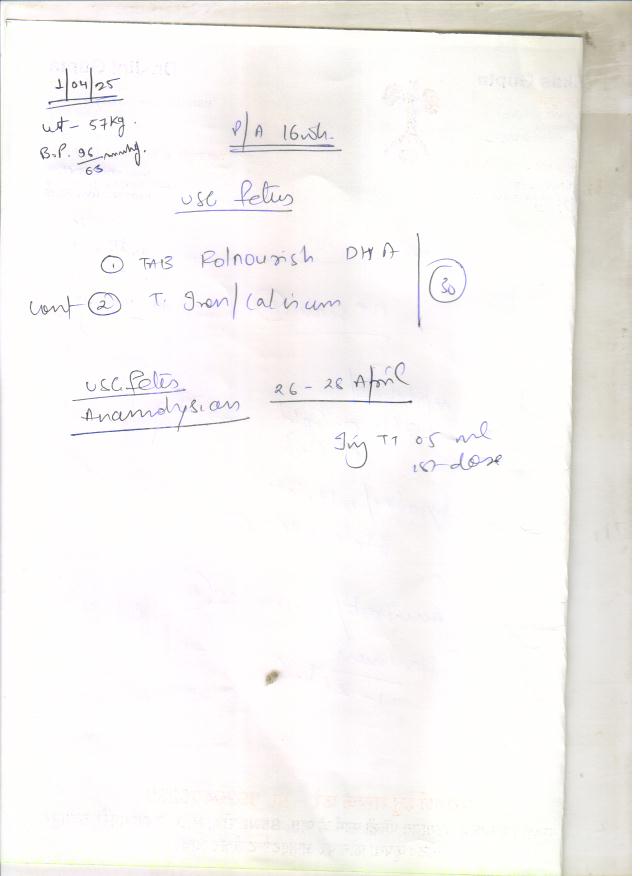 1/04/25
wt - 57kg.
B.P. 96 mmHg.
68
P/A 16wk.
USG fetus
① TAB Folnourish DHA
cont ② T. Iron/calicum
30
USG fetus
26 - 28 April
Anamolysian
Inj TT 05 ml
1st dose